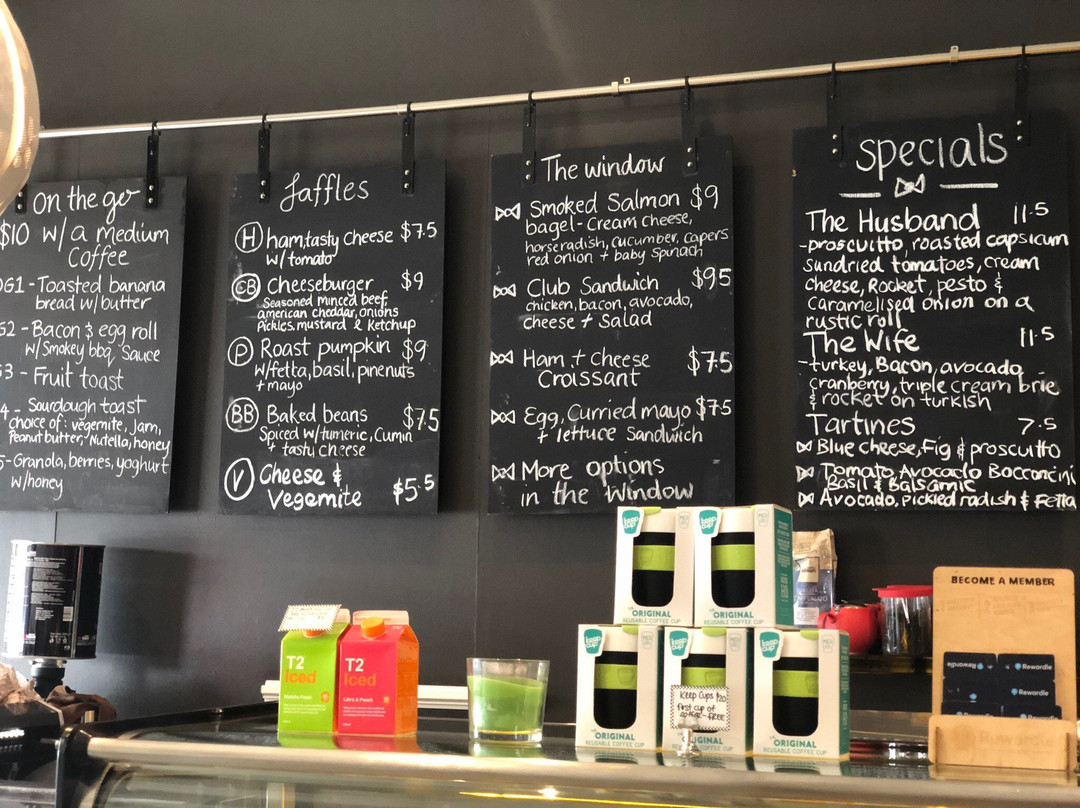 On the go
$10 w/ a medium
Coffee
OG1 - Toasted banana
bread w/ butter
G2 - Bacon & egg roll
w/ Smokey bbq sauce
G3 - Fruit toast
4 - Sourdough toast
choice of: vegemite, Jam,
Peanut butter, Nutella, honey
5 - Granola, berries, yoghurt
w/ honey
Jaffles
H ham, tasty cheese $7.5
w/ tomato
CB Cheeseburger $9
Seasoned minced beef,
american cheddar, onions
Pickles, mustard & Ketchup
P Roast pumpkin $9
w/ fetta, basil, pinenuts
+ mayo
BB Baked beans $7.5
Spiced w/ tumeric, Cumin
+ tasty cheese
V Cheese &
Vegemite $5.5
The window
Smoked Salmon $9
bagel - Cream cheese,
horseradish, cucumber, capers
red onion + baby spinach
Club Sandwich $95
chicken, bacon, avocado,
cheese + Salad
Ham + Cheese $7.5
Croissant
Egg, Curried mayo $7.5
+ lettuce Sandwich
More options
in the window
Specials
The Husband 11.5
- proscuitto, roasted capsicum
sundried tomatoes, cream
cheese, Rocket, pesto &
Caramelised onion on a
rustic roll
The Wife 11.5
- turkey, Bacon, avocado
cranberry, triple cream brie
& rocket on turkish
Tartines 7.5
Blue cheese, Fig & proscuitto
Tomato Avocado Bocconcini
Basil & Balsamic
Avocado, pickled radish & Fetta
keep cup
keep cup
ORIGINAL
REUSABLE COFFEE CUP
ORIGINAL
REUSABLE COFFEE CUP
keep cup
keep cup
keep cup
ORIGINAL
REUSABLE COFFEE CUP
ORIGINAL
REUSABLE COFFEE CUP
ORIGINAL
REUSABLE COFFEE CUP
Keep Cups $20
first cup of
coffee - FREE
T2
Iced
T2
Iced
Life's A Peach
BECOME A MEMBER
Rewardle
Rewardle
Rewardle